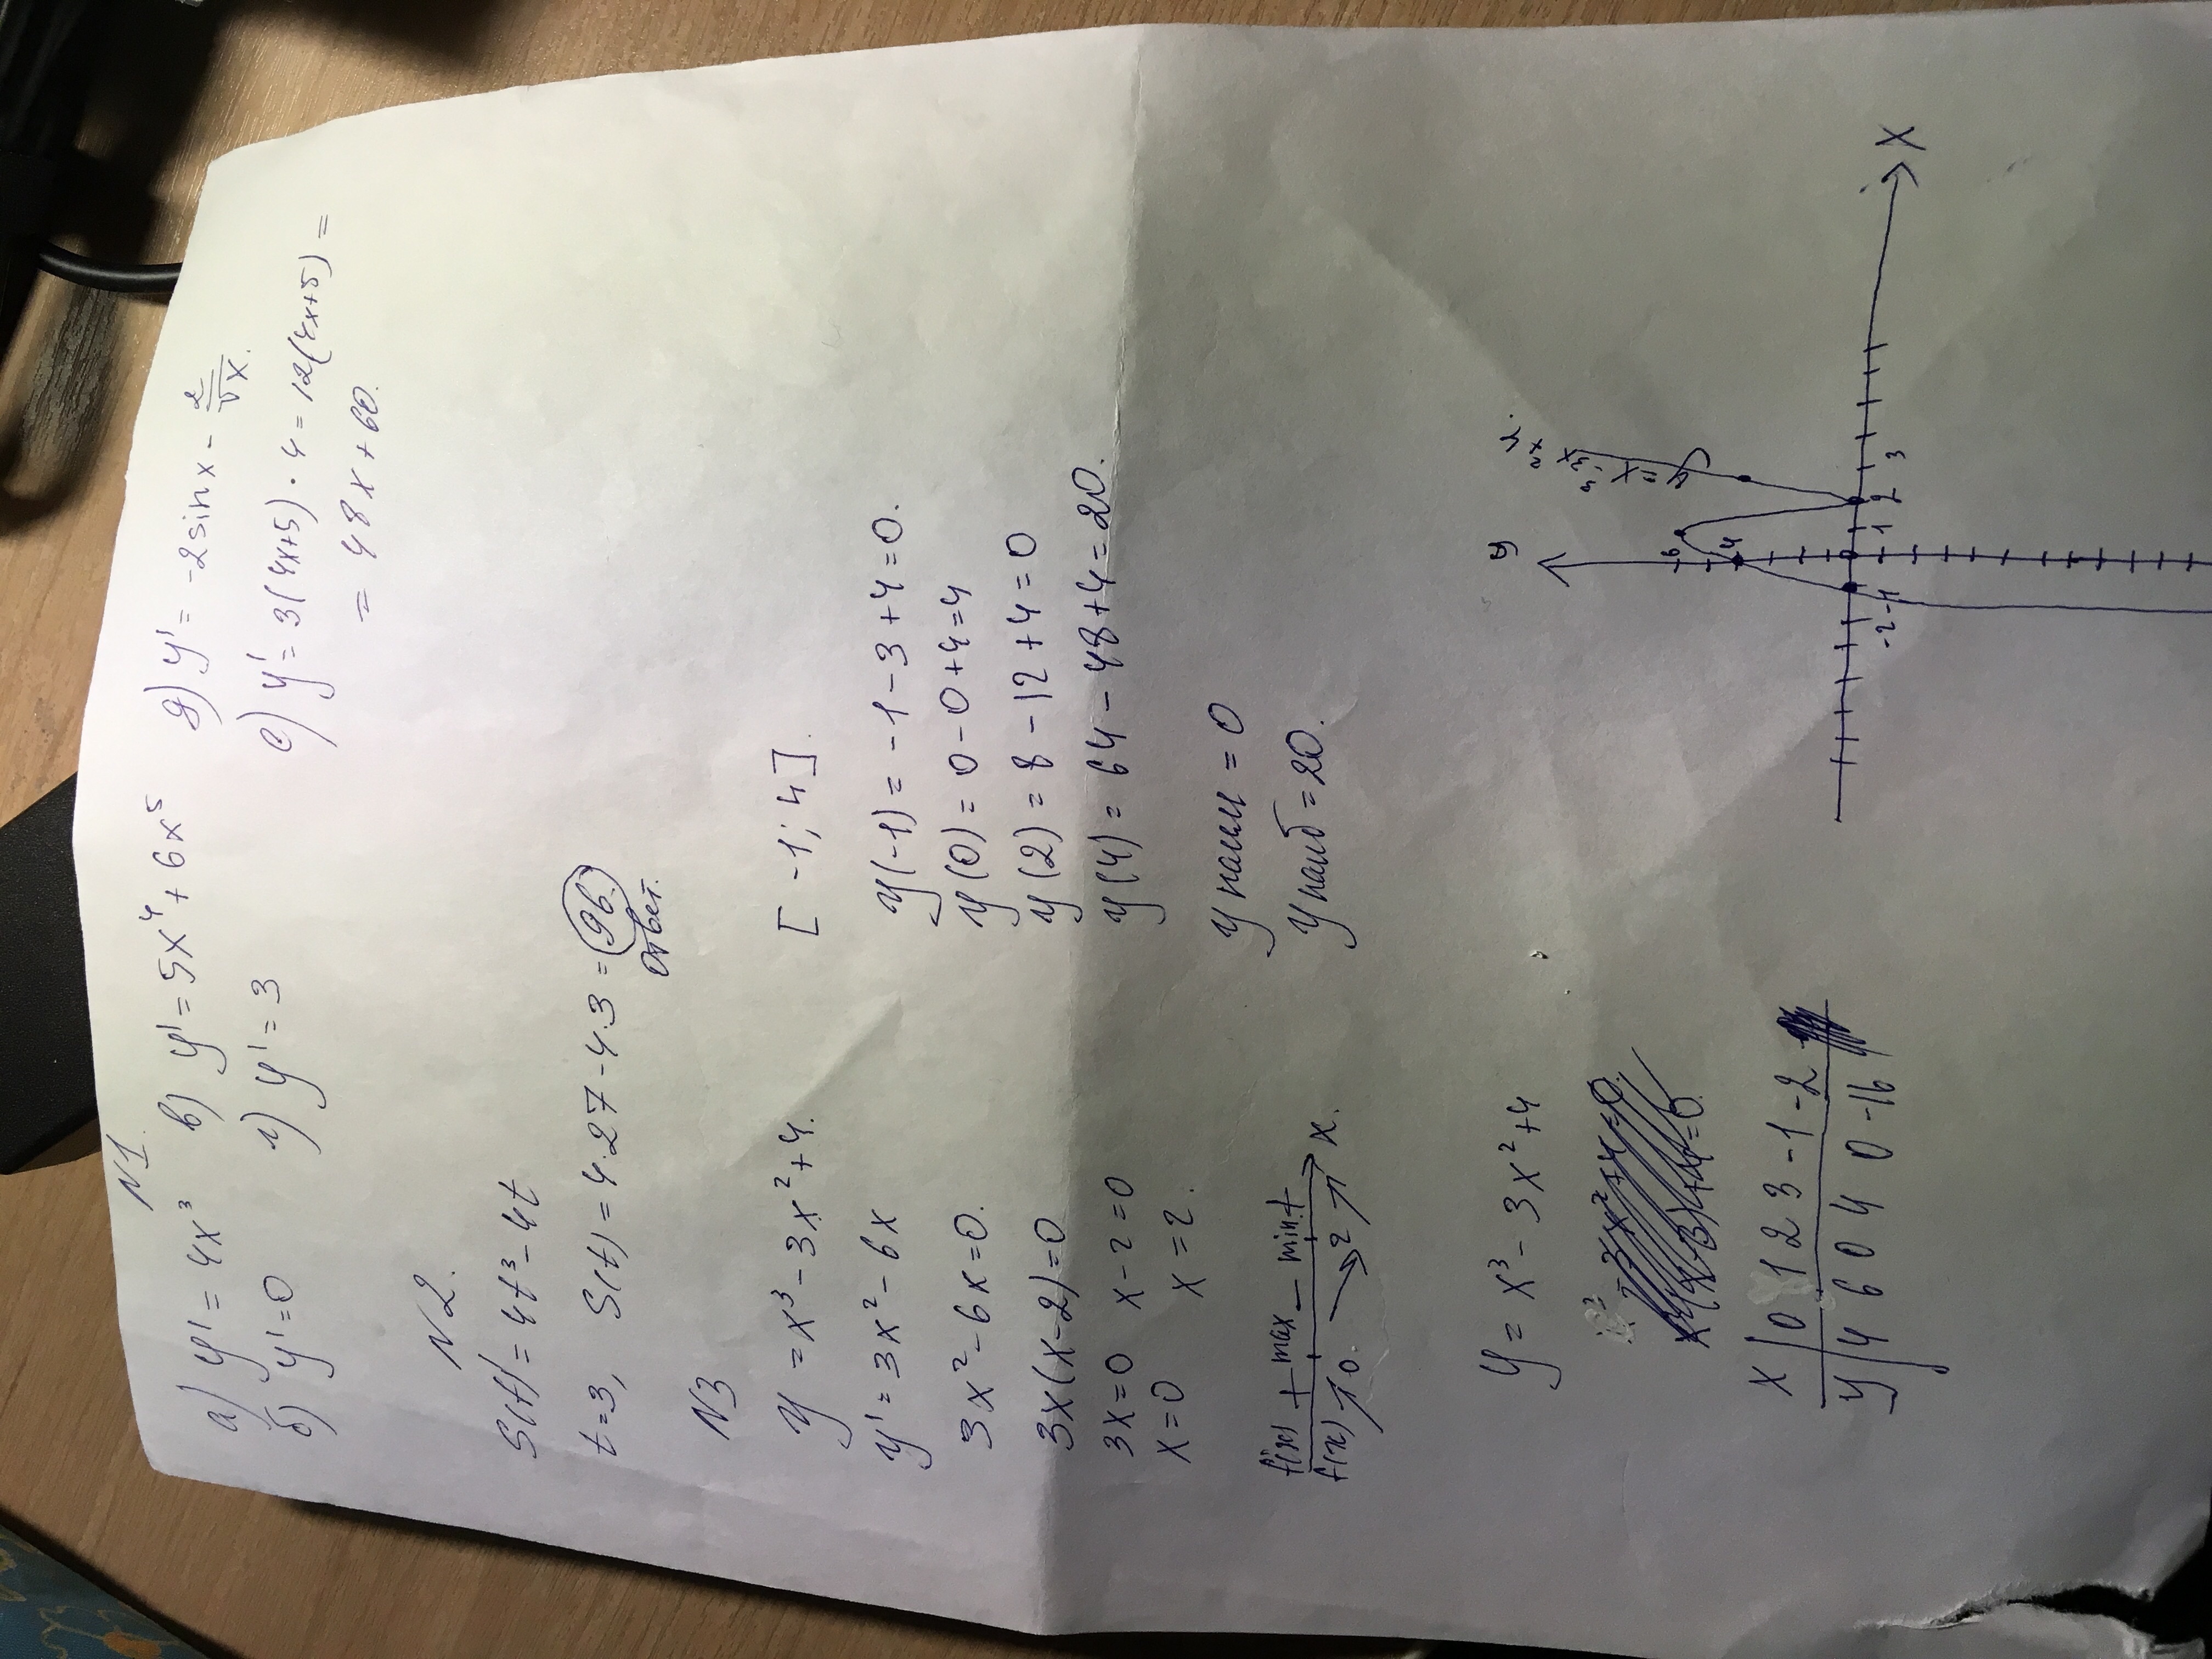 N1.
а) y' = 4x³ в) y' = 5x⁴ + 6x⁵ д) y' = -2sinx - 2/√x.
б) y' = 0 г) y' = 3 е) y' = 3(4x+5)·4 = 12(4x+5) =
= 48x + 60.
N2.
S(t) = 4t³ - 4t
t=3, S(t) = 4·27 - 4·3 = 96.
ответ.
N3
y = x³ - 3x² + 4. [-1; 4].
y' = 3x² - 6x y(-1) = -1 - 3 + 4 = 0.
3x² - 6x = 0. y(0) = 0 - 0 + 4 = 4
3x(x-2) = 0 y(2) = 8 - 12 + 4 = 0
3x=0 x-2=0 y(4) = 64 - 48 + 4 = 20.
x=0 x=2.
y наим = 0
f'(x) + max - min + x.
f(x) ↗ 0. ↘ 2 ↗
y наиб = 20.
y = x³ - 3x² + 4
x | 0 1 2 3 -1 -2
y | 4 6 0 4 0 -16
y
y=x³-3x²+4.
6
4
0
-2 -1 1 2 3
X